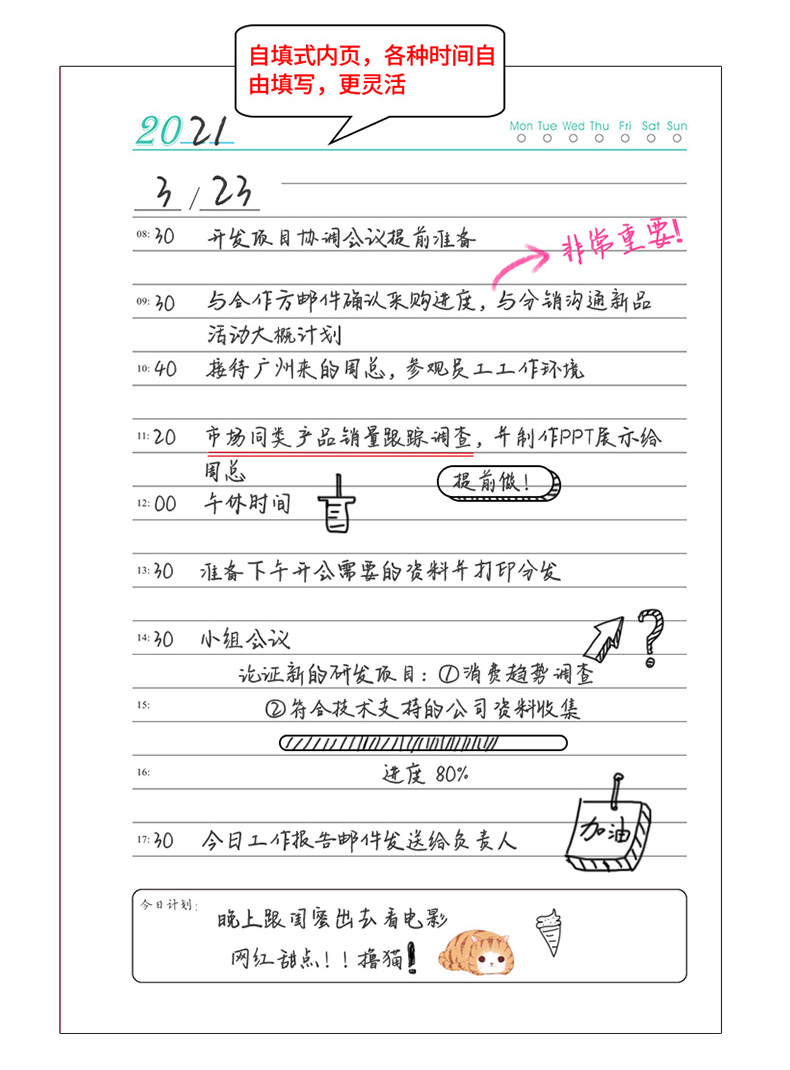 自填式内页，各种时间自
由填写，更灵活
2021
Mon Tue Wed Thu Fri Sat Sun
3 / 23
08:30 开发项目协调会议提前准备
非常重要!
09:30 与合作方邮件确认采购进度，与分销沟通新品
活动大概计划
10:40 接待广州来的周总，参观员工工作环境
11:20 市场同类产品销量跟踪调查，并制作PPT展示给
周总
提前做！
12:00 午休时间
13:30 准备下午开会需要的资料并打印分发
14:30 小组会议
?
论证新的研发项目：①消费趋势调查
15: ②符合技术支持的公司资料收集
16: 进度 80%
加油
17:30 今日工作报告邮件发送给负责人
今日计划:
晚上跟闺蜜出去看电影
网红甜点！！撸猫!